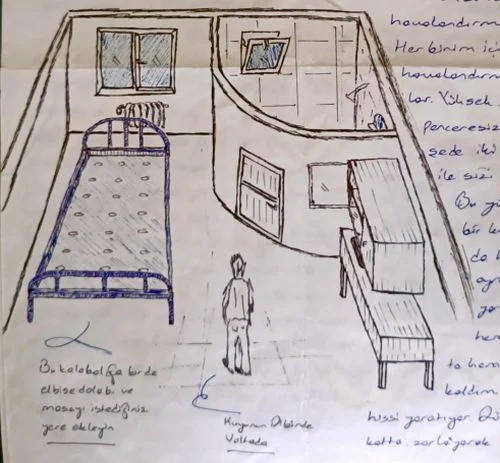 havalandırm
Her birim içi
havalandırm
lar. Yüksek
penceresiz
sede iki
ile sizi
Bu
bir
hem
kaldım.
hissi yaratıyor.
katta, zorlayarak
Bu kalabalığa bir de
elbise dolabı ve
masayı istediğiniz
yere ekleyin
Kuyunun Dibinde
Voltada